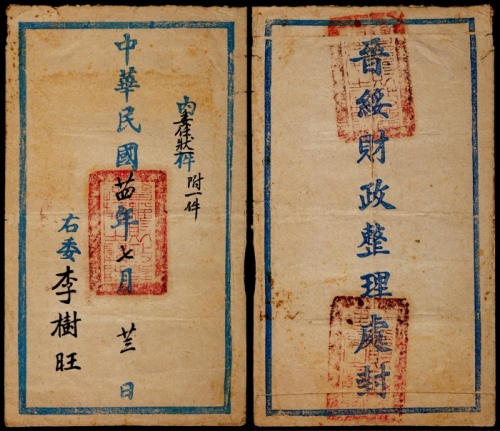 內委任狀一件附一件
中華民國廿四年七月廿三日
右委李樹旺
晉綏財政整理處封